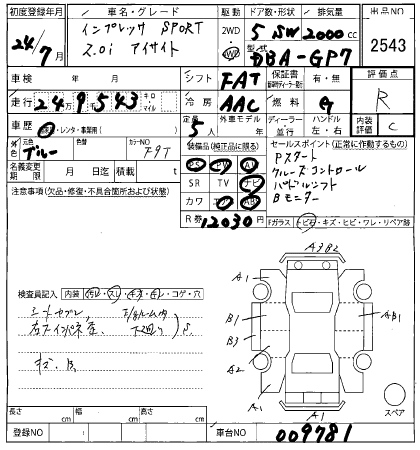 初度登録年月 車名・グレード 駆動 ドア数・形状 排気量 出品NO
24/7 インプレッサ SPORT 2WD 4WD 5 SW 2000 cc 2543
2.0i アイサイト 型式 DBA-GP7
車検 年 月 シフト FAT 保証書 有・無 評価点
走行 24千9543 キロ・マイル 冷房 AAC 燃料 G R
車歴 自家・レンタ・事業用( ) 定員 5人 外車モデル年 ディーラー・並行 ハンドル 左・右 内装評価 C
外色 元色 ブルー 色替 カラーNO
名義変更期限 月 日迄 積載 t
装備品(純正品に限る) セールスポイント(正常に作動するもの)
PS PW AW Pスタート
SR TV ナビ クルーズコントロール
カワ エア パドルシフト
R券 12030円
注意事項(欠品・修復・不具合箇所および状態)
Fガラス トビ石・キズ・ヒビ・ワレ・リペア跡
検査員記入 内装 汚レ・スレ・キズ・コゲ・穴
A3B2
A1 A
B1 AB1
B3
A2
A1 A
A1
スペア
長さ cm 幅 cm 高さ cm
登録NO 車台NO 009781